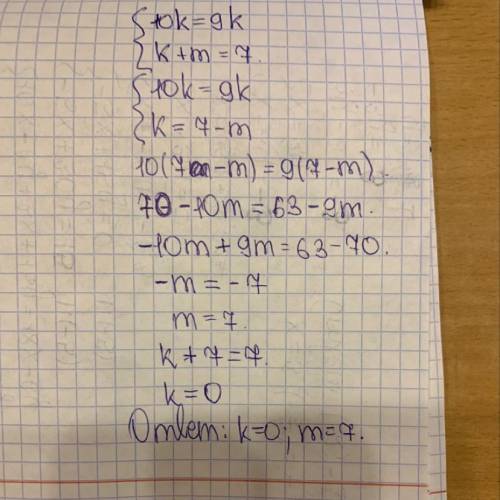 10k = 9k
k + m = 7.
10k = 9k
k = 7 - m
10(7 - m) = 9(7 - m).
70 - 10m = 63 - 9m.
-10m + 9m = 63 - 70.
-m = -7
m = 7.
k + 7 = 7.
k = 0
Ответ: k=0; m=7.